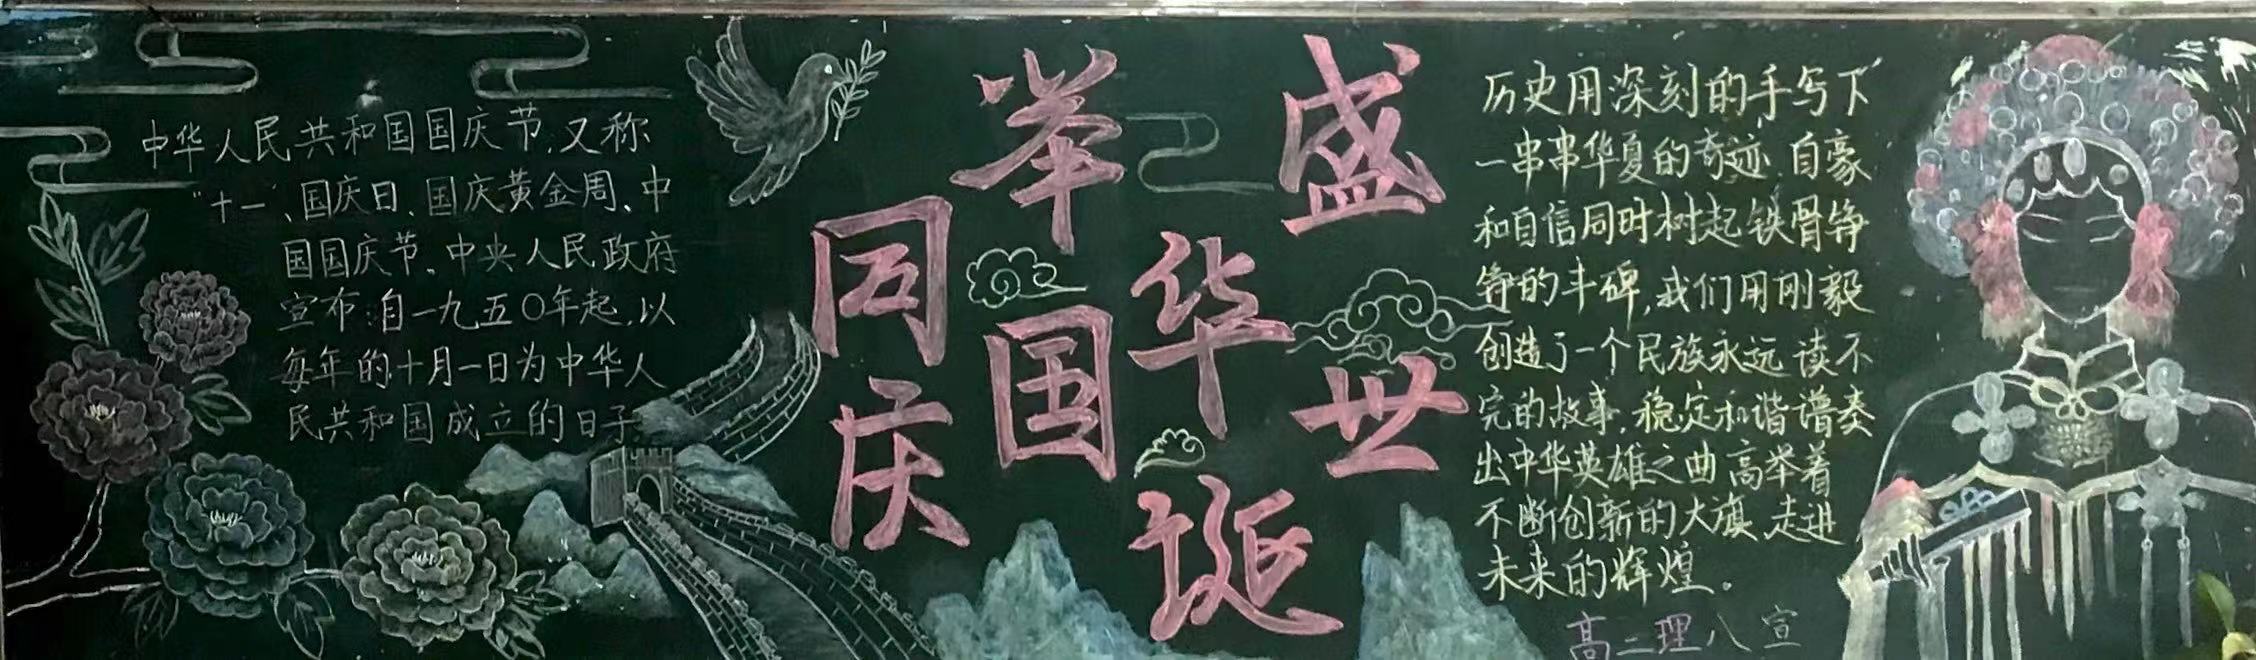 中华人民共和国国庆节,又称
"十一、国庆日、国庆黄金周、中
国国庆节。中央人民政府
宣布:自一九五〇年起,以
每年的十月一日为中华人
民共和国成立的日子
盛世
华诞
举国
同庆
历史用深刻的手写下
一串串华夏的奇迹.自豪
和自信同时树起铁骨铮
铮的丰碑,我们用刚毅
创造了一个民族永远读不
完的故事,稳定和谐谱奏
出中华英雄之曲高举着
不断创新的大旗,走进
未来的辉煌。
高二理八宣